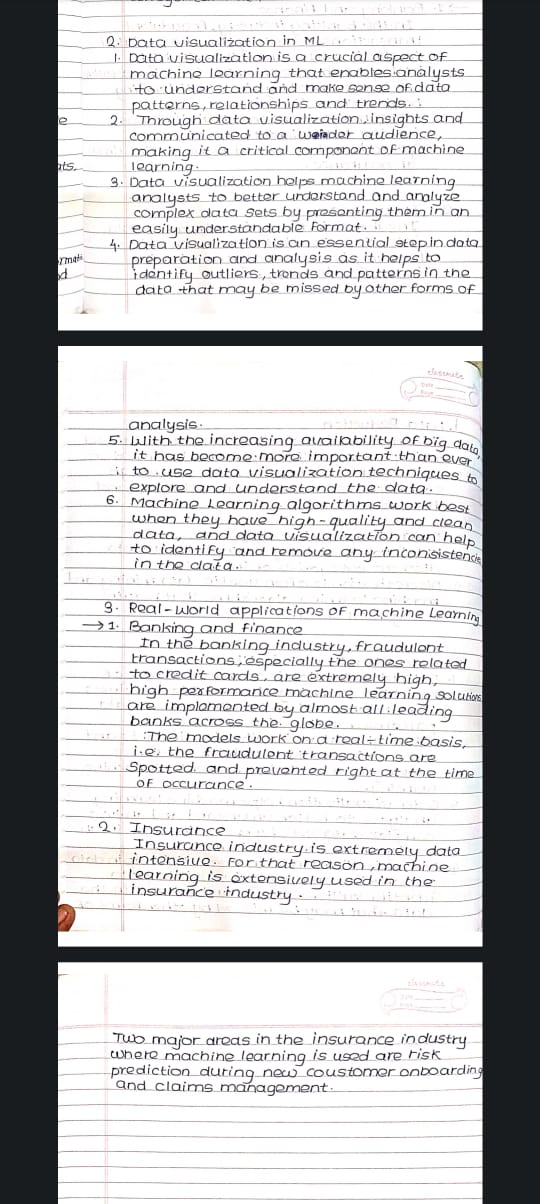 2. Data visualization in ML
1. Data visualization is a crucial aspect of
machine learning that enables analysts
to understand and make sense of data
patterns, relationships and trends.
e
2. Through data visualization insights and
communicated to a wider audience,
making it a critical component of machine
ats.
learning.
3. Data visualization helps machine learning
analysts to better understand and analyze
complex data sets by presenting them in an
easily understandable format.
4. Data visualization is an essential step in data
rmats
preparation and analysis as it helps to
d
identify outliers, trends and patterns in the
data that may be missed by other forms of
classmate
Date
Page
analysis.
5. With the increasing availability of big data,
it has become more important than ever
to use data visualization techniques to
explore and understand the data.
6. Machine Learning algorithms work best
when they have high-quality and clean
data, and data visualization can help
to identify and remove any inconisistencie
in the data.
3. Real-world applications of machine Learning
→1. Banking and finance
In the banking industry, fraudulent
transactions, especially the ones related
to credit cards, are extremely high,
high performance machine learning solutions
are implemented by almost all leading
banks across the globe.
The models work on a real-time basis,
i.e. the fraudulent transactions are
Spotted and prevented right at the time
of occurance.
2. Insurance
Insurance industry is extremely data
intensive. For that reason, machine
learning is extensively used in the
insurance industry.
classmate
Date
Page
Two major areas in the insurance industry
where machine learning is used are risk
prediction during new coustomer onboarding
and claims management.